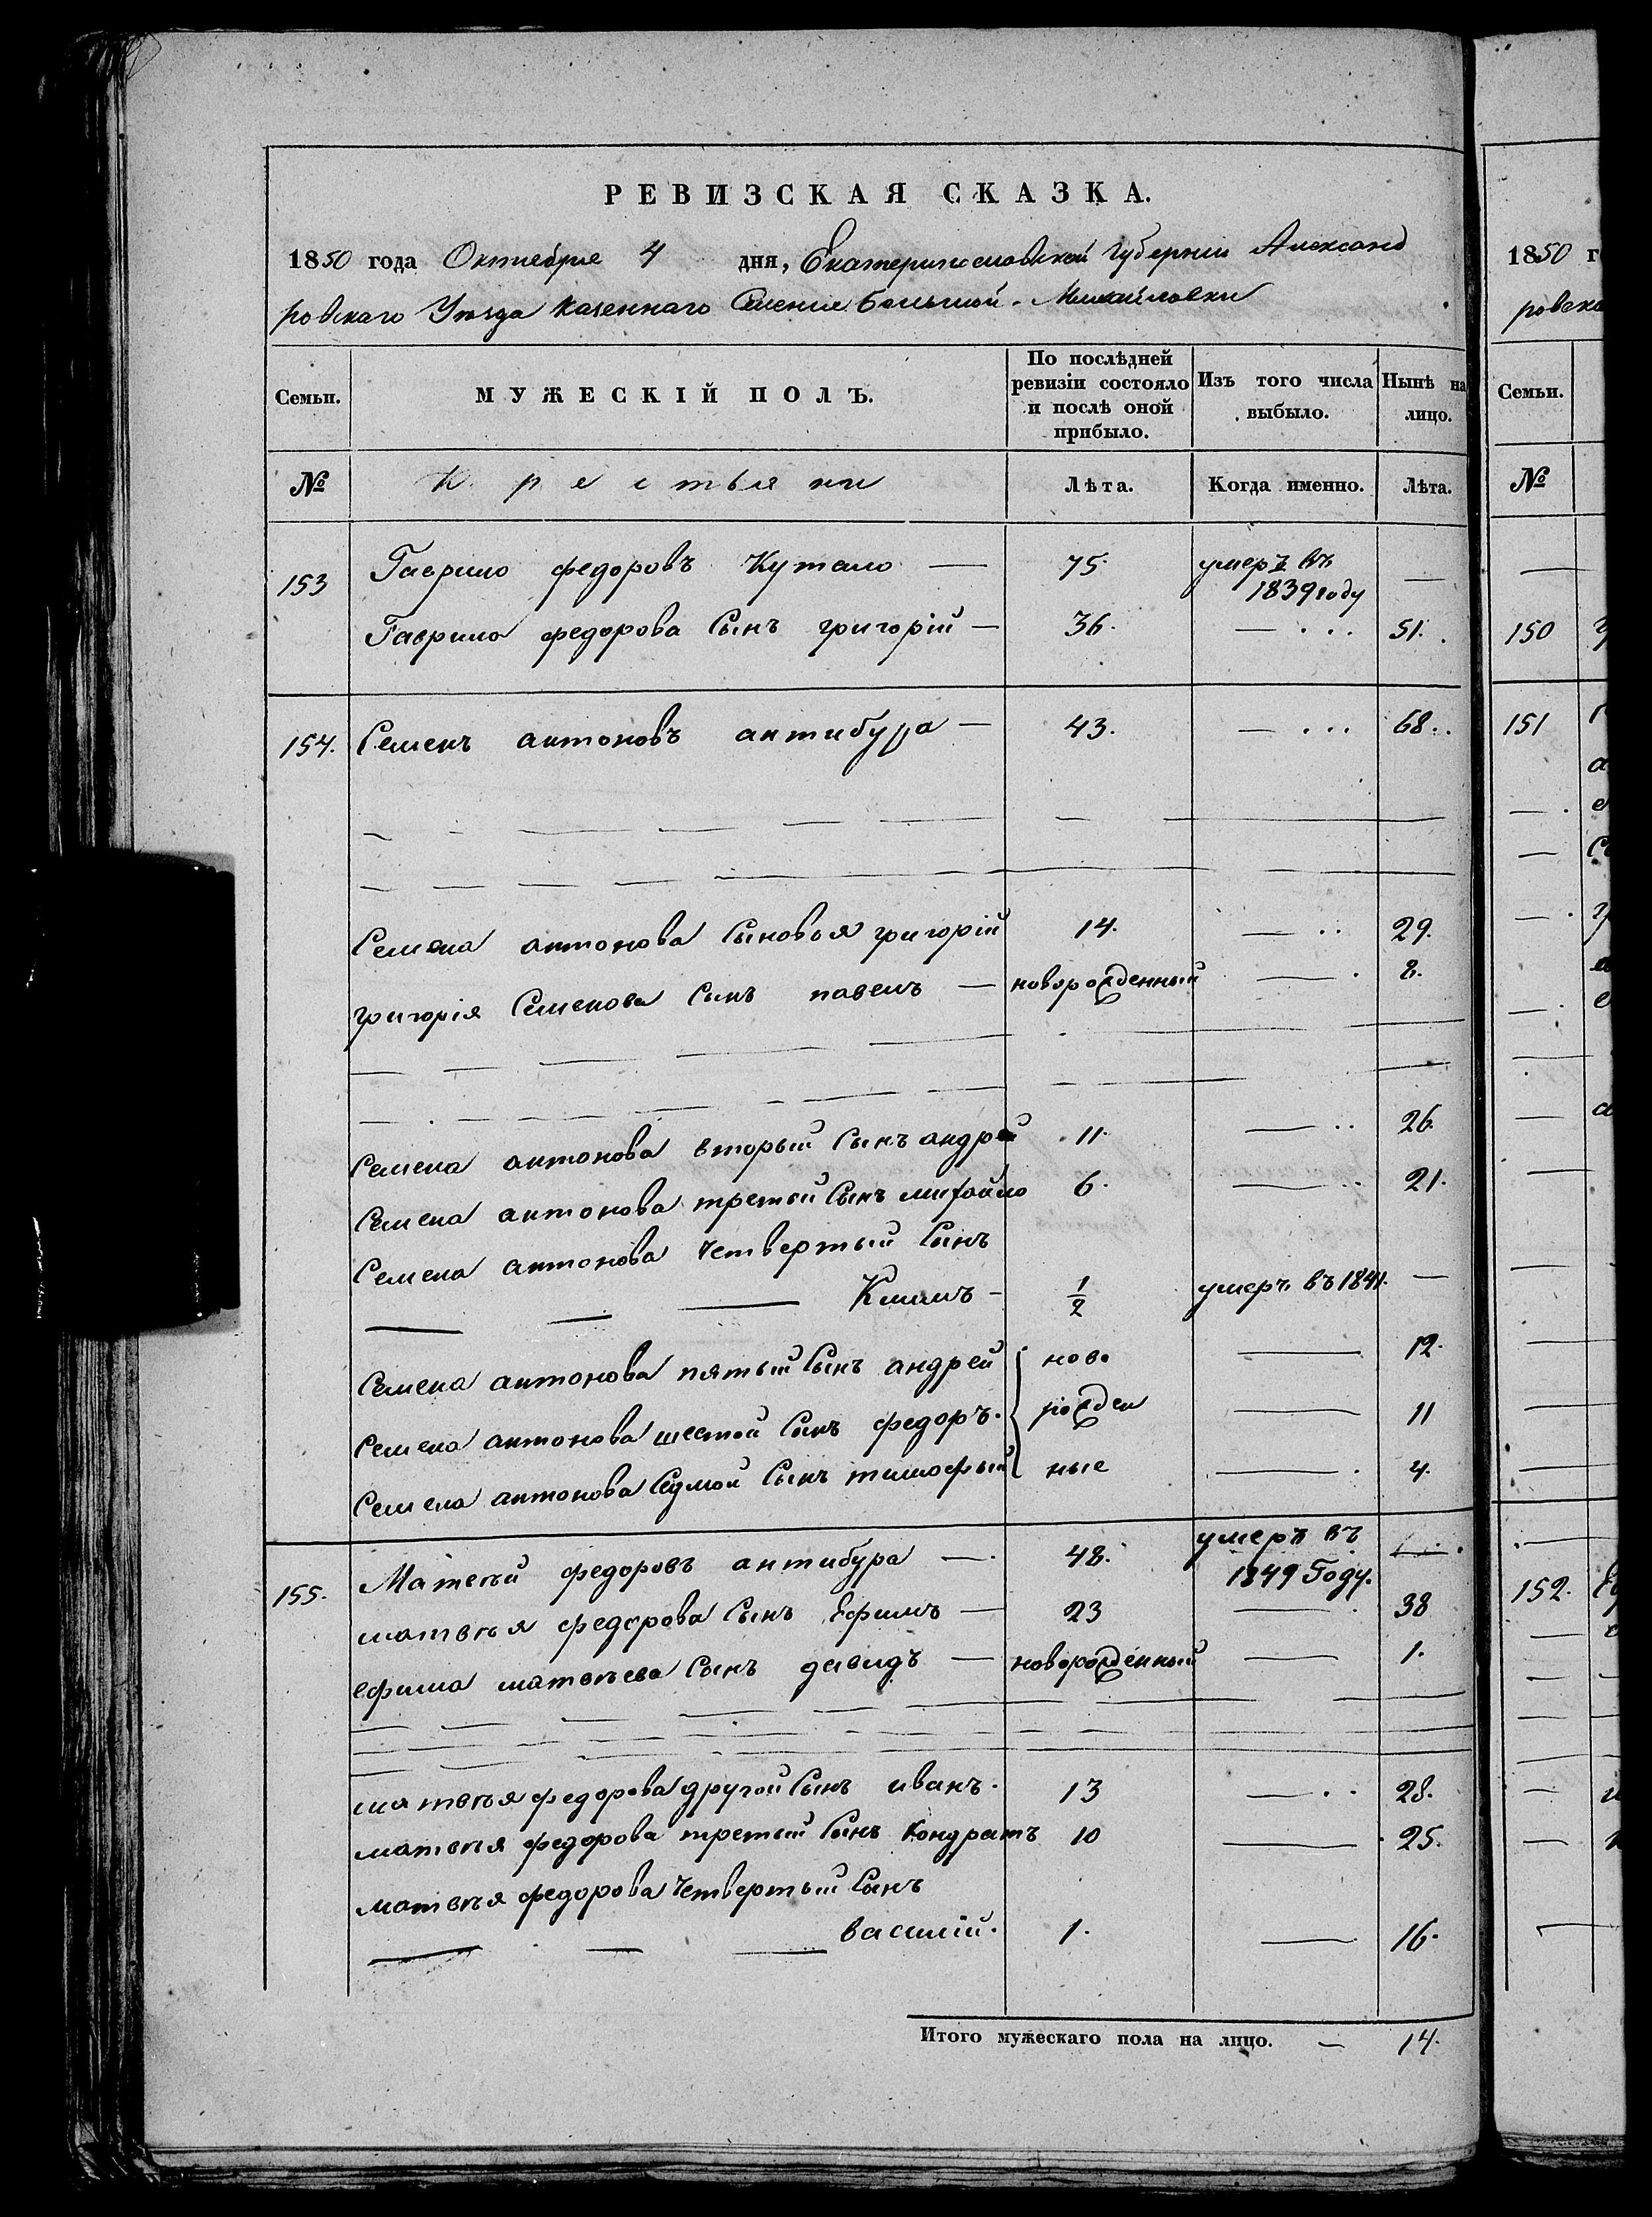 РЕВИЗСКАЯ СКАЗКА.
1850 года Октября 4 дня, Екатеринославской Губернии Александ
ровскаго Уѣзда казеннаго Селенія Большой-Михайловки
Семьи.
МУЖЕСКІЙ ПОЛЪ.
По послѣдней ревизіи состояло и послѣ оной прибыло.
Изъ того числа выбыло.
Нынѣ на лицо.
№ Крестьяни Лѣта. Когда именно. Лѣта.
153 Гаврило федоровъ Кутало — 75. умеръ въ 1839 году —
Гаврило федорова Сынъ григорій — 36. — 51.
154. Семенъ антоновъ антибура — 43. — 68.
Семена антонова Сыновья григорій 14. — 29.
григорія Семенова Сынъ павелъ — новорожденный — 2.
Семена антонова вторый Сынъ андрей 11. — 26.
Семена антонова третій Сынъ михайло 6. — 21.
Семена антонова Четвертый Сынъ
Климъ — 1/2 умеръ въ 1841. —
Семена антонова пятый Сынъ андрей ново — 12.
Семена антонова шестой Сынъ федоръ. рожден — 11
Семена антонова Седмой Сынъ тимофѣй ные — 4.
155. Матвѣй федоровъ антибура — 48. умеръ въ 1849 Году.
матвѣя федорова Сынъ Ефимъ — 23 — 38
ефима матвѣева Сынъ давидъ — новорожденный — 1.
матвѣя федорова другой Сынъ иванъ. 13 — 28.
матвѣя федорова третій Сынъ Кондратъ 10 — 25.
матвѣя федорова Четвертый Сынъ
василій. 1. — 16.
Итого мужескаго пола на лицо. — 14.
1850 г
ровска
Семьи.
№
150
151
152.